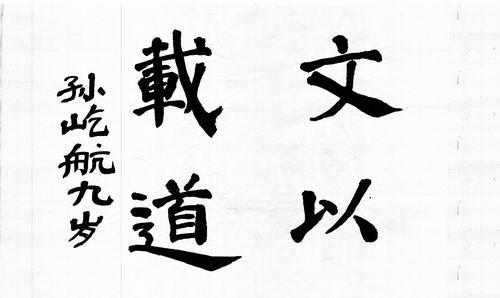 文以
載道
孙屹航九岁